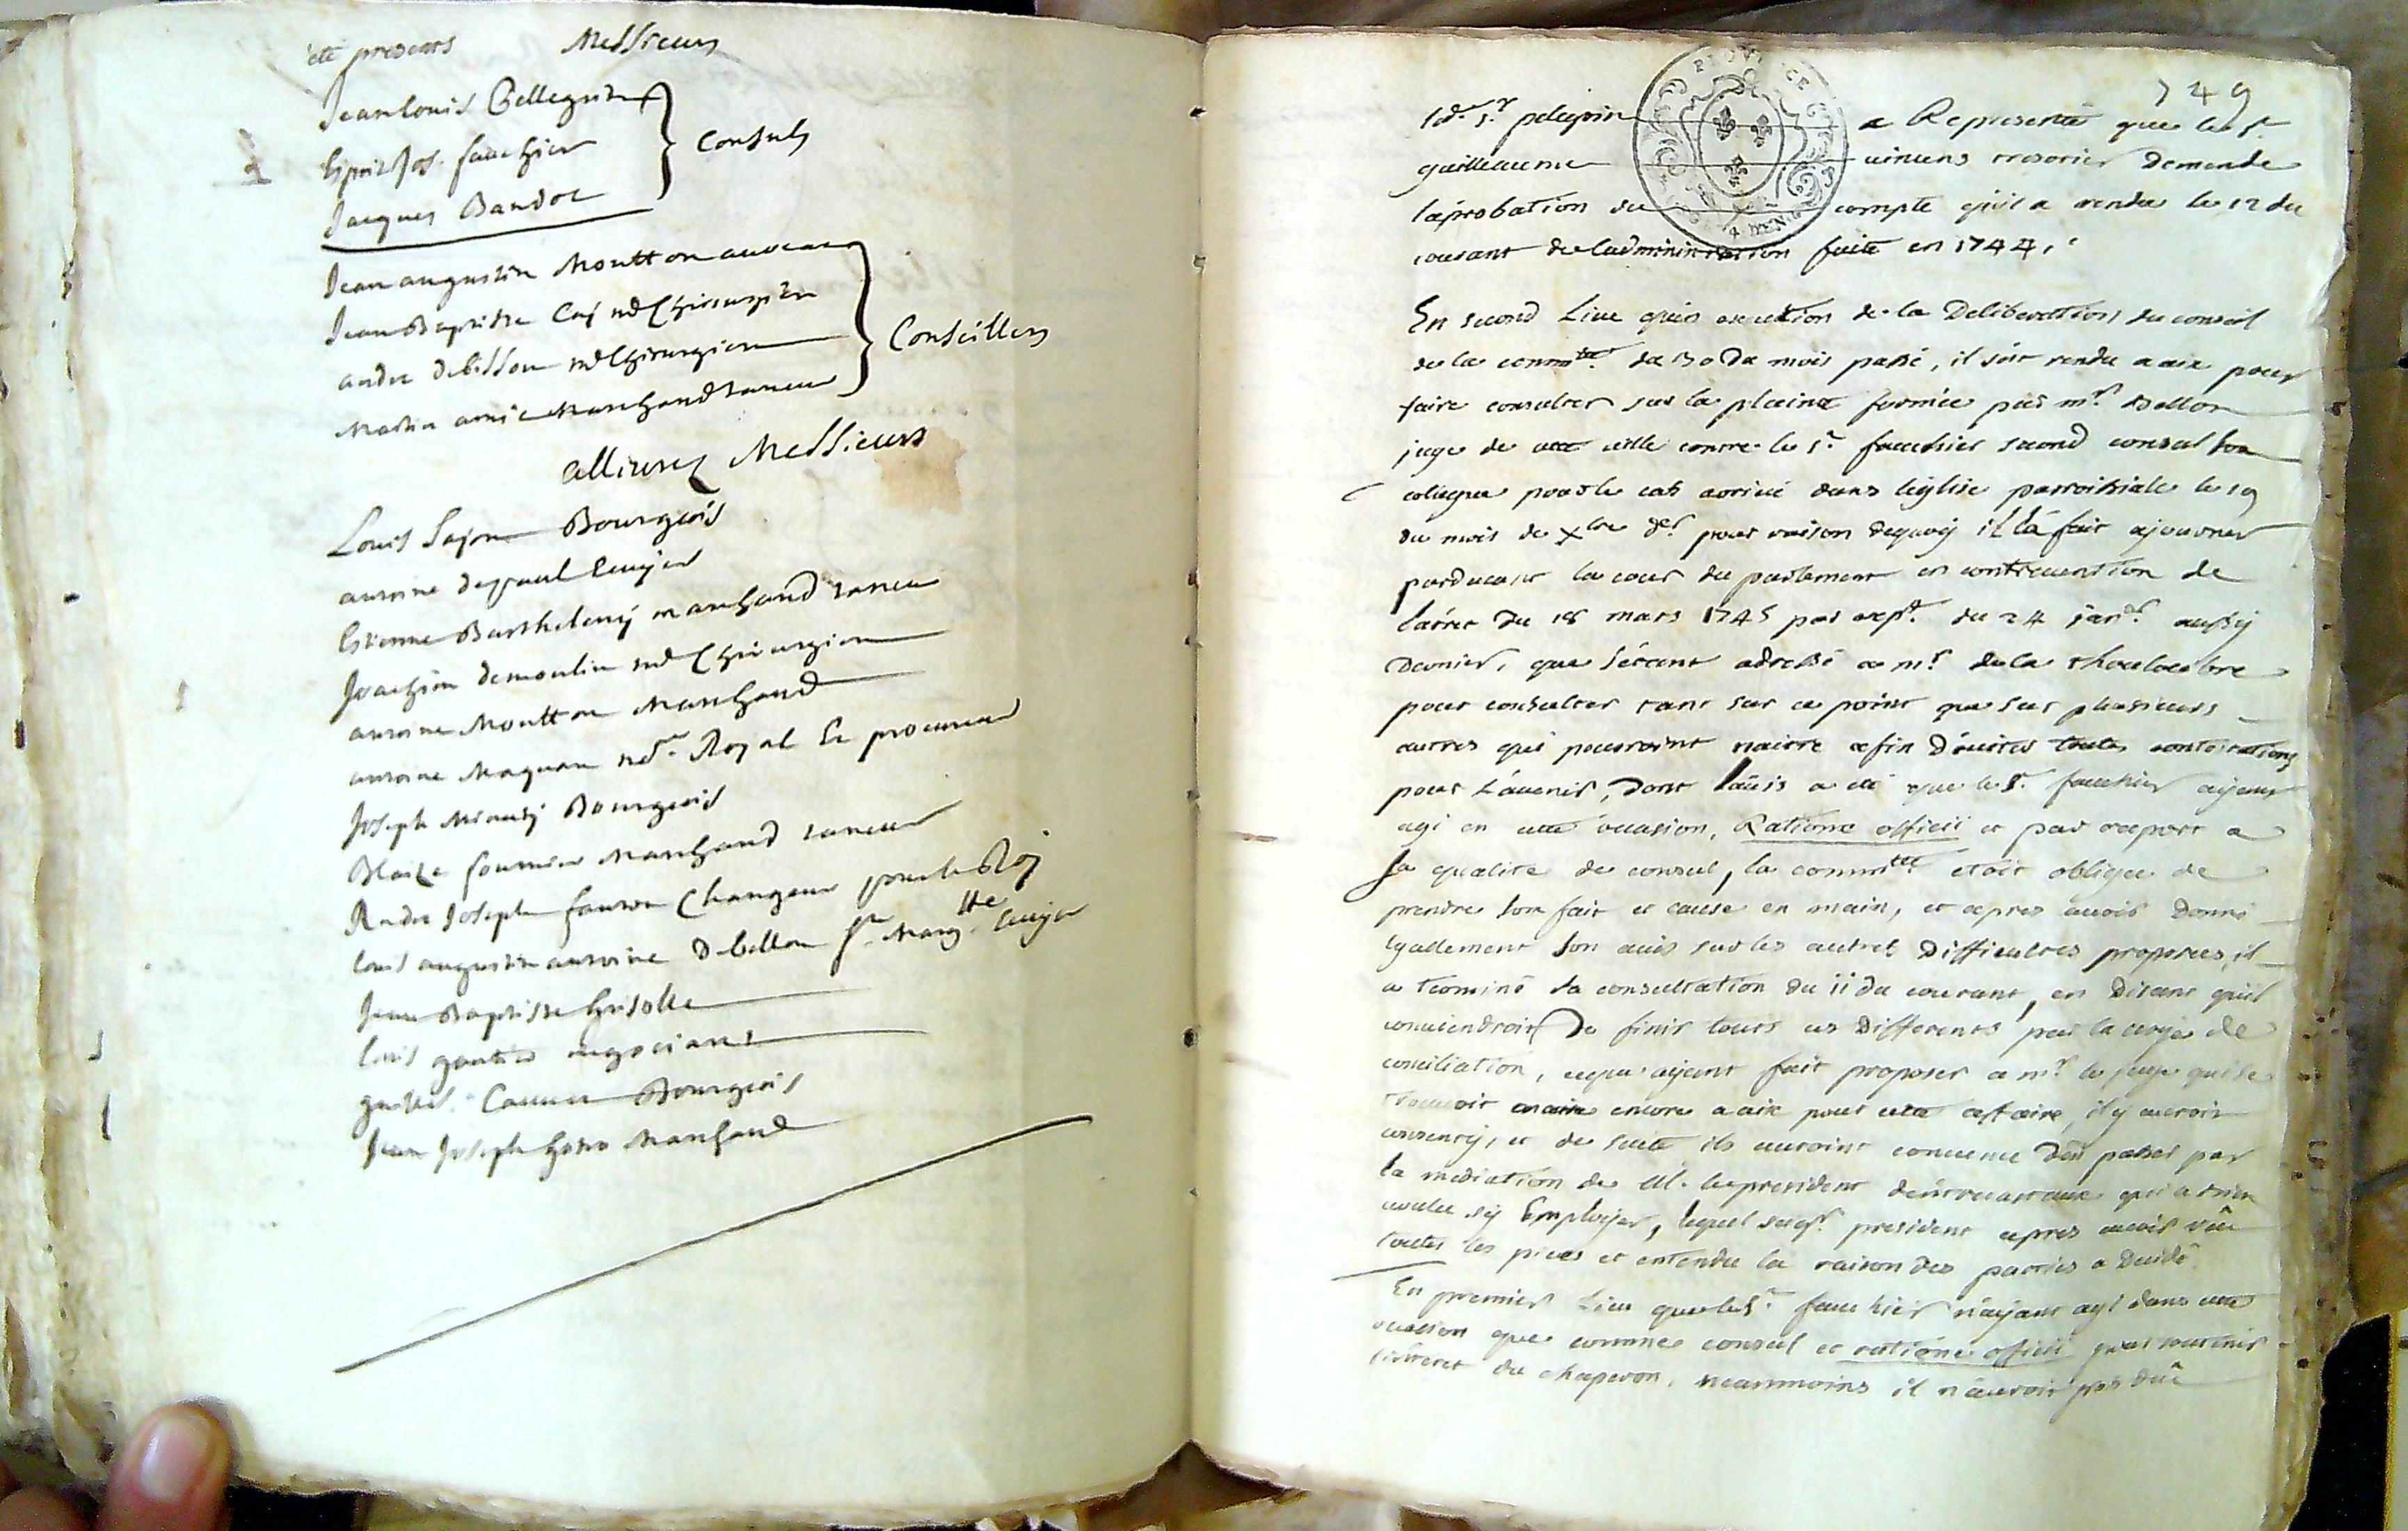 été presents Messieurs
Jean Louis Pellegrin
Esprit Jos. fauchier
Jacques Bandol
Consuls
Jean augustin Moutton avocat
Jean Baptiste Caij md Chirurgien
andre debesson md Chirurgien
Martin amic Marchand taneur
Conseillers
allivrez Messieurs
Louis Bourgeois
antoine despaul Ecuijer
Estienne Barthelemij marchand taneur
Joachim demoulin md Chirurgien
antoine Moutton Marchand
antoine Maquan nore Roÿal Et procureur
Joseph Bourgeois
Blaize fournier Marchand taneur
André Joseph faure Changeur pour le Roj
Louis augustin antoine Debellon Ste Margtte Ecuijer
Jean Baptiste Grisolle
Louis gautier negociant
Bourgeois
Jean Joseph Marchand
749
led. sr. pelegrin a Representé que le sr.
guilleaume vincens tresorier demende
l'aprobation du compte qu'il a rendu le 12 du
courant de l'administration faite en 1744.
En second Lieu qu'en execution de la Deliberation du conseil
de la commté. du 30 Du mois passé, il s'est rendu a aix pour
faire consulter sur la plainte formée par mr. Bellon
juge de cette ville contre le sr. fauchier second consul son
colegue pour le cas arrivé dans l'eglise parroissiale le 19
du mois de Xbre der. pour raison dequoÿ il l'a fait ajourner
pardevant la cour du parlement en contravention de
l'arret Du 18 mars 1745 par expt. du 24 janr. aussÿ
dernier, que s'étant adressé a mr. de la
pour consulter tant sur ce point que sur plusieurs
autres qui pourroint naitre afin D'éviter toutes contestations
pour L'avenir, Dont l'avis a été que le Sr. fauchier aÿant
agi en cette occasion, Ratione officii et par raport a
sa qualité de consul, la commté étoit obligée de
prendre son fait et cause en main, et apres avoir Donné
Egallement son avis sur les autres Difficultes proposées, il
a terminé sa consultation du 11 du courant, en Disant qu'il
conviendroit De finir touts ces Differents par la voÿe de
conciliation, ce qu'aÿant fait proposer a mr. le juge qui se
trouvoit encore a aix pour cette affaire, il y auroit
consentÿ, et de suite ils auroint convenu D'en passer par
la mediation de M. le president d'entrecasteaux qui a bien
voulu sÿ Emploÿer, lequel seigr. president apres avoir vûe
toutes les pieces et entendu la raison des parties a Decidé.
En premier Lieu que le Sr. fauchier n'aÿant agi dans cette
occasion que comme consul et ratione officii pour soutenir
l'interet du chaperon, neanmoins il n'auroit pas dûe